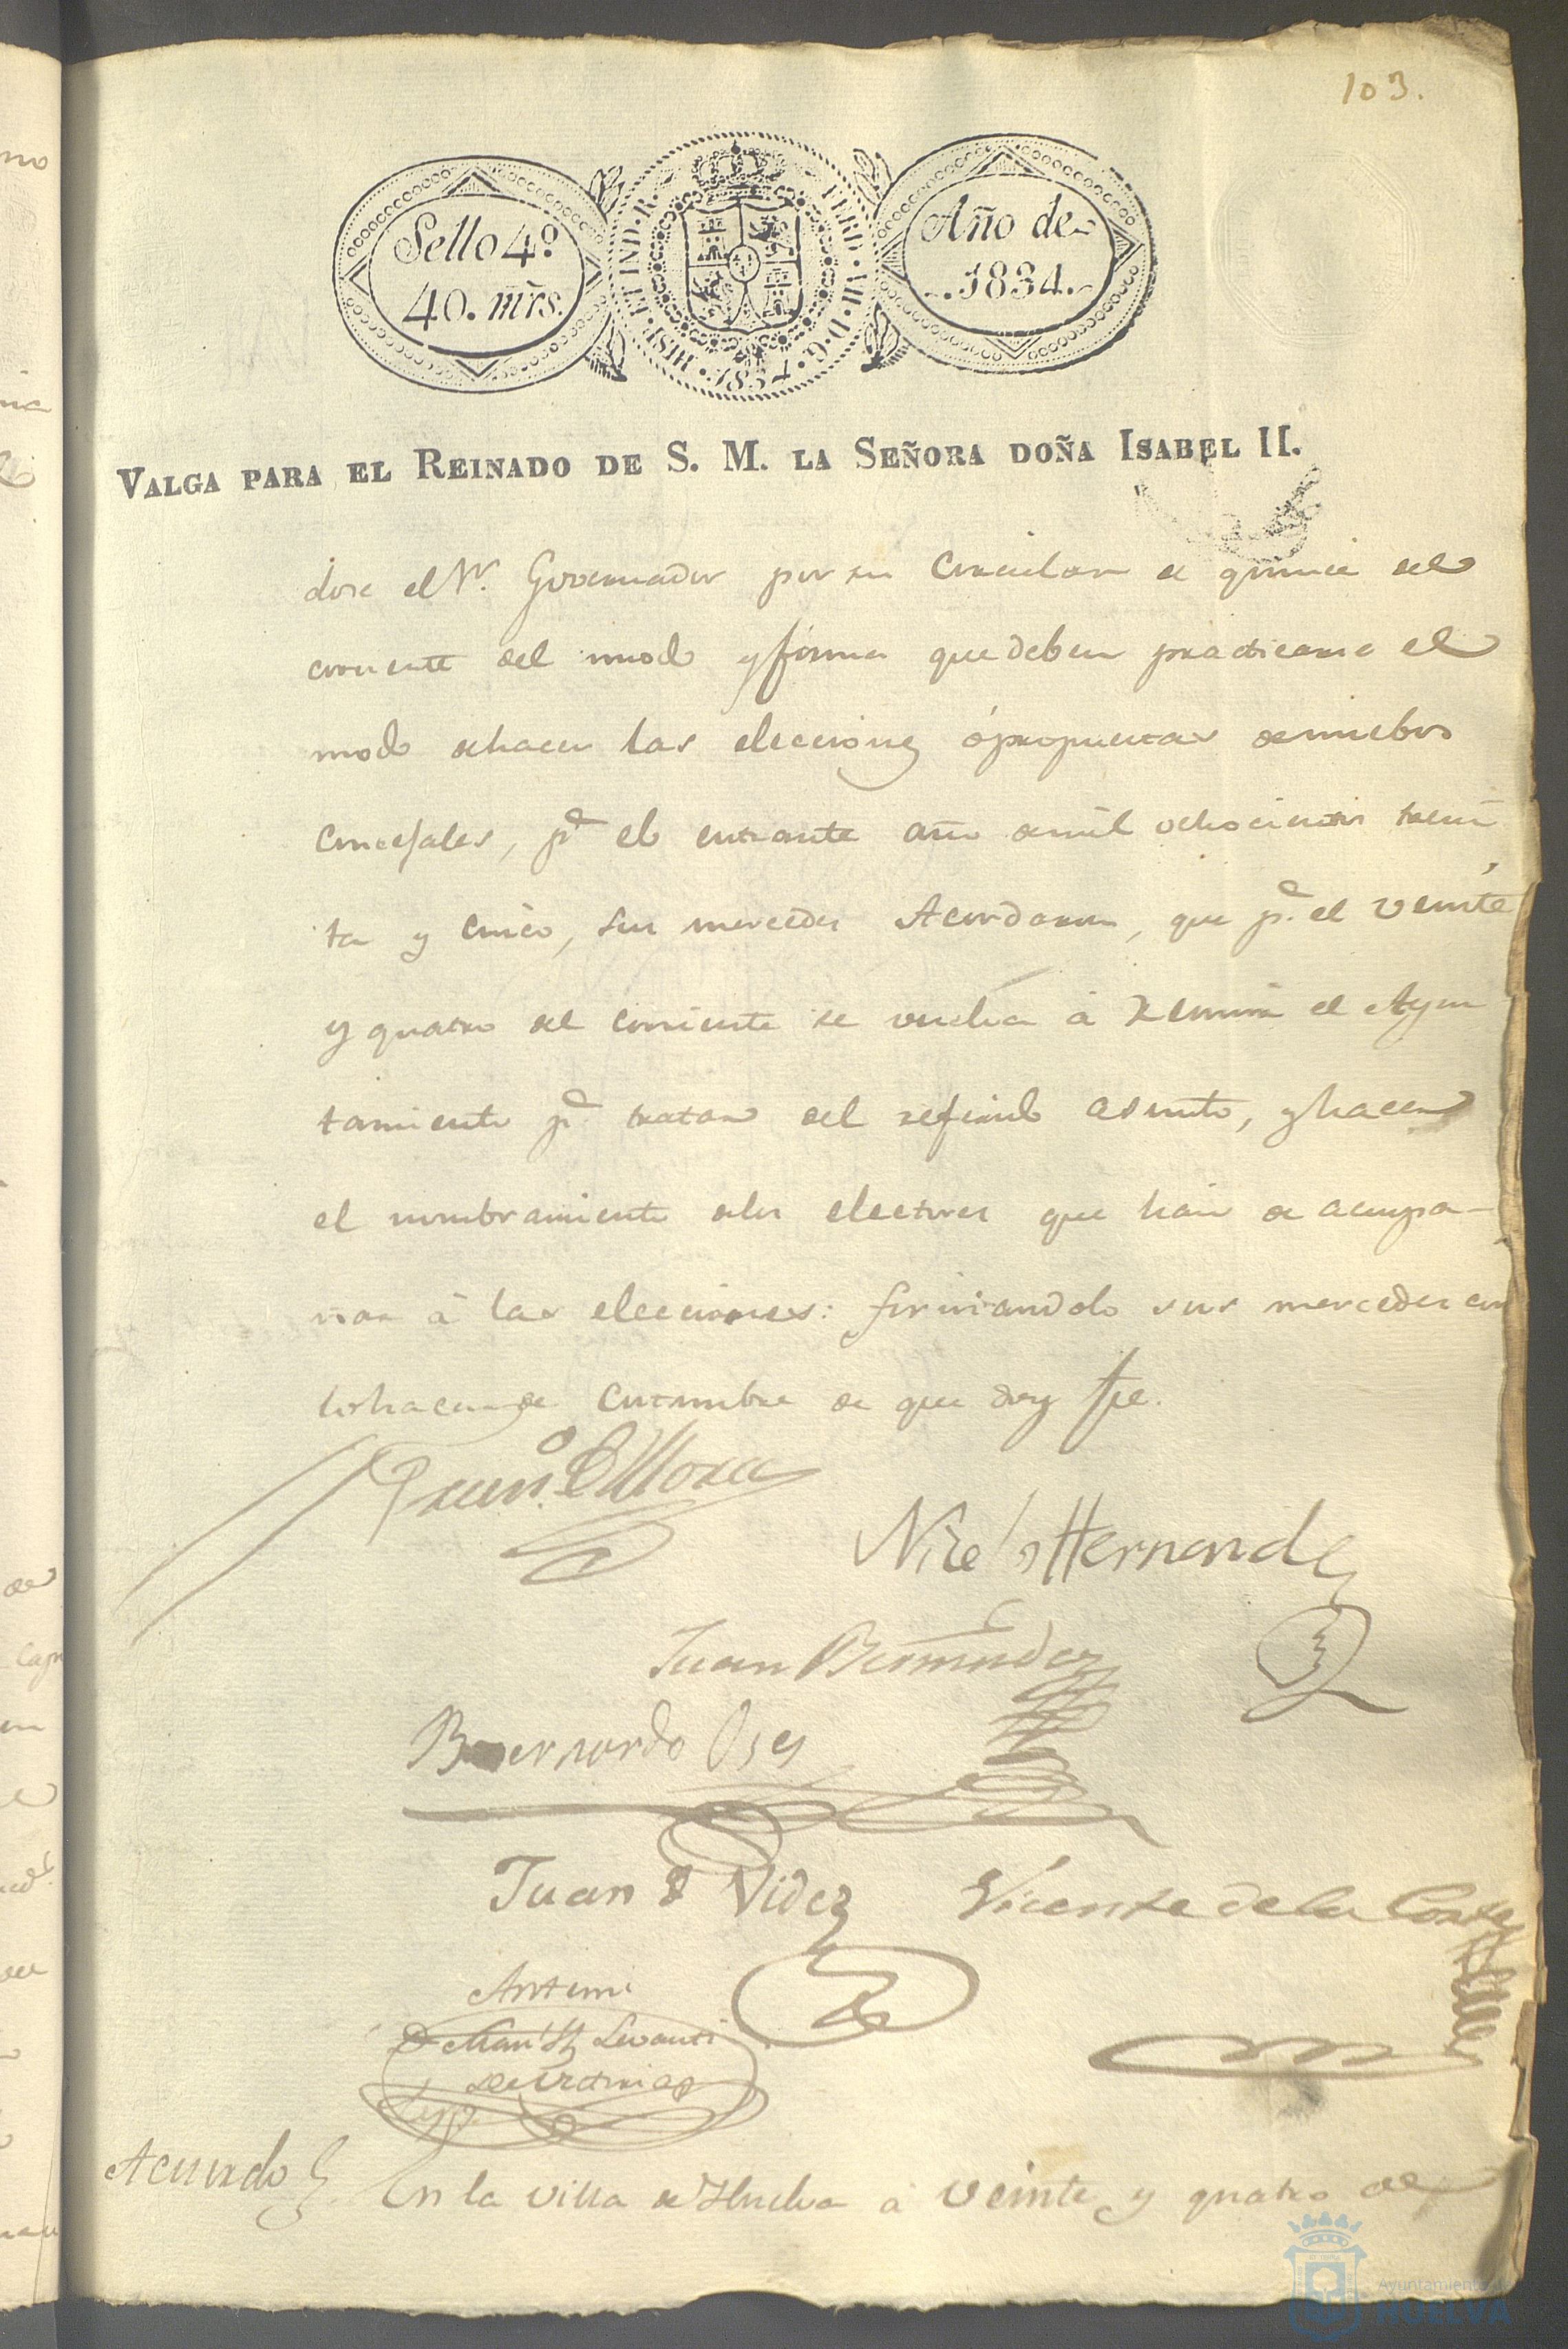 103.
Sello 4º
40. mrs.
HISP. ET IND. R.
FERD. VII. D. G.
1834.
Año de
1834.
VALGA PARA EL REINADO DE S. M. LA SEÑORA DOÑA ISABEL II.
dose el Sr. Governador por su Circular de quince del
corriente del modo y forma que deben practicarse el
modo de hacer las elecciones ó propuestas de nuebos
Concejales, pª el entrante año de mil ochocientos trein
ta y cinco, sus mercedes Acordaron, que pª el veinte
y quatro del corriente se vuelva á reunir el Ayun
tamiento pª tratar del referido asunto, y hacer
el nombramiento de los electores que han de acompa-
ñar á las elecciones: firmandolo sus mercedes con
los hacen de Costumbre de que doy fe.
Franco. de Mora
Nico's Hernandz
Juan Bermudez
Bernardo
Juan Videz
Vicente de la Corte
Antemi
Levanti
Secretario
Acuerdo
En la villa de Huelva á veinte y quatro de
Ayuntamiento de
HUELVA